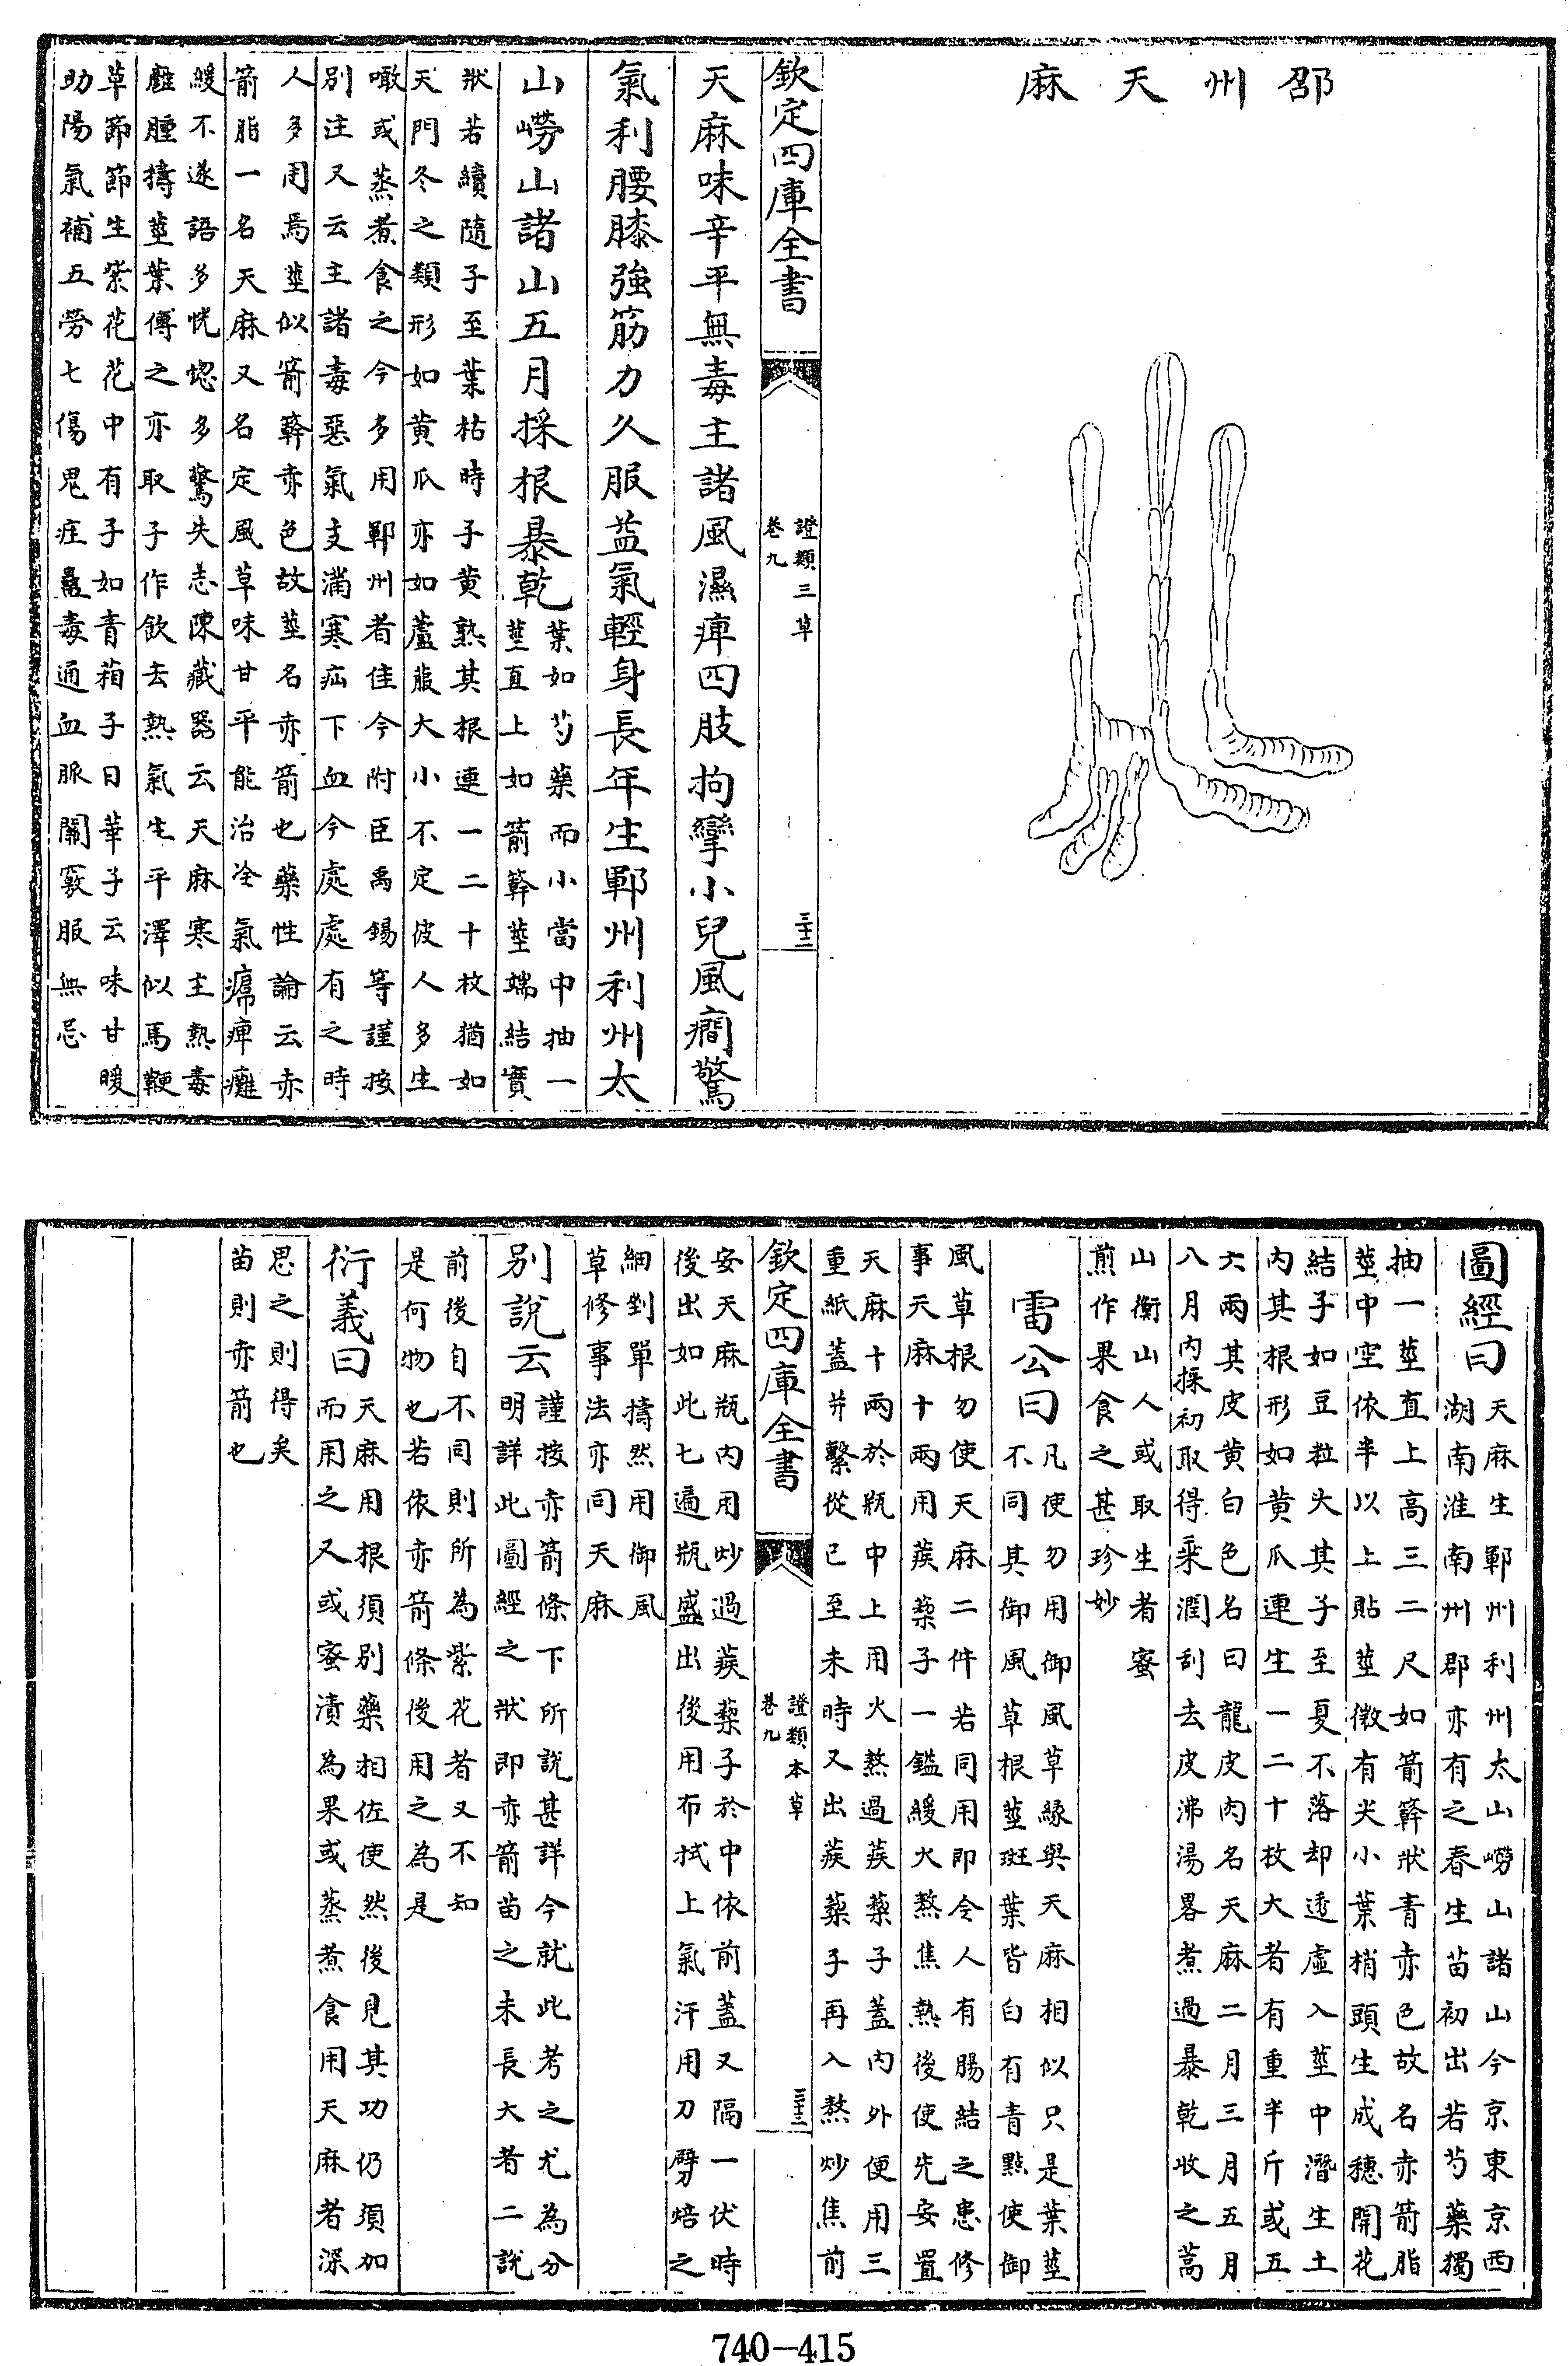 邵州天麻
欽定四庫全書
證類本草
卷九
三十二
天麻味辛平無毒主諸風濕痺四肢拘攣小兒風癇驚
氣利腰膝強筋力久服益氣輕身長年生鄆州利州太
山嶗山諸山五月採根暴乾
葉如芍藥而小當中抽一
莖直上如箭簳莖端結實
狀若續隨子至葉枯時子黄熟其根連一二十枚猶如
天門冬之類形如黄瓜亦如蘆菔大小不定彼人多生
噉或蒸煮食之今多用鄆州者佳今附臣禹錫等謹按
別注又云主諸毒惡氣支滿寒疝下血今處處有之時
人多用焉莖似箭簳赤色故莖名赤箭也藥性論云赤
箭脂一名天麻又名定風草味甘平能治冷氣𤸷痺癱
緩不遂語多恍惚多驚失志陳藏器云天麻寒主熱毒
癰腫擣莖葉傅之亦取子作飲去熱氣生平澤似馬鞭
草節節生紫花花中有子如青葙子日華子云味甘暖
助陽氣補五勞七傷鬼疰蠱毒通血脈開竅服無忌
圖經曰
天麻生鄆州利州太山嶗山諸山今京東京西
湖南淮南州郡亦有之春生苗初出若芍藥獨
抽一莖直上高三二尺如箭簳狀青赤色故名赤箭脂
莖中空依半以上貼莖微有尖小葉梢頭生成穗開花
結子如豆粒大其子至夏不落却透虛入莖中潛生土
內其根形如黄瓜連生一二十枚大者有重半斤或五
六兩其皮黄白色名曰龍皮肉名天麻二月三月五月
八月內採初取得乘潤刮去皮沸湯畧煮過暴乾收之嵩
山衡山人或取生者蜜
煎作果食之甚珍妙
雷公曰
凡使勿用御風草緣與天麻相似只是葉莖
不同其御風草根莖斑葉皆白有青點使御
風草根勿使天麻二件若同用即令人有腸結之患修
事天麻十兩用蒺蔾子一鎰緩火熬焦熟後使先安置
天麻十兩於瓶中上用火熬過蒺蔾子蓋內外便用三
重紙蓋并繫從巳至未時又出蒺蔾子再入熬炒焦前
欽定四庫全書
證類本草
卷九
三十三
安天麻瓶內用炒過蒺蔾子於中依前蓋又隔一伏時
後出如此七遍瓶盛出後用布拭上氣汗用刀劈焙之
細剉單擣然用御風
草修事法亦同天麻
別說云
謹按赤箭條下所說甚詳今就此考之尤為分
明詳此圖經之狀即赤箭苗之未長大者二說
前後自不同則所為紫花者又不知
是何物也若依赤箭條後用之為是
衍義曰
天麻用根須別藥相佐使然後見其功仍須加
而用之又或蜜漬為果或蒸煮食用天麻者深
思之則得矣
苗則赤箭也
740—415